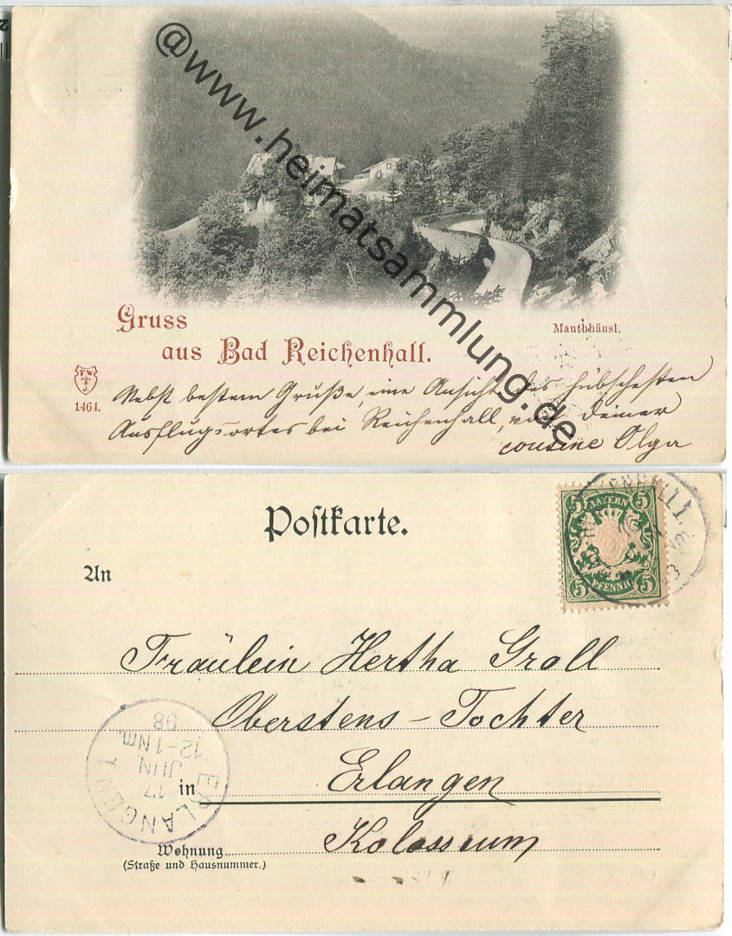 @www.heimatsammlung.de
Gruss
aus Bad Reichenhall.
Mauthhäusl.
1464.
Nebst bestem Grüße, eine Ansicht des hübschesten
Ausflugsortes bei Reichenhall, von Deiner
cousine Olga
Postkarte.
An
BAYERN
5 5
5 5
PFENNIG
Fräulein Hertha Groll
Oberstens-Tochter
in Erlangen
Kolosseum
Wohnung
(Straße und Hausnummer.)
ERLANGEN 1
17
JUN.
12-1 Nm.
98